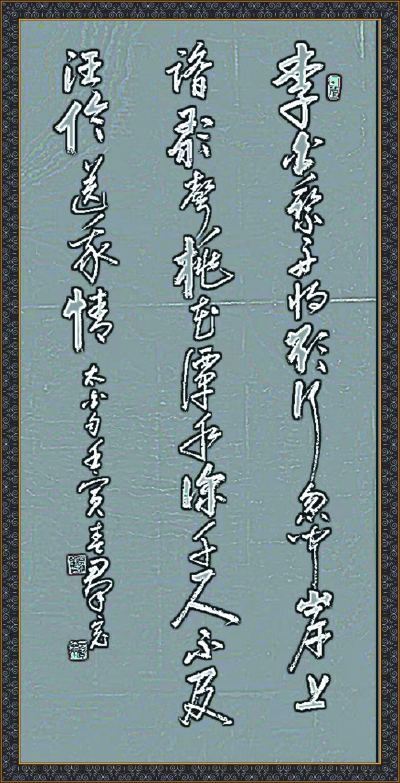 李白乘舟将欲行忽闻岸上
踏歌聲桃花潭水深千尺不及
汪伦送我情 太白句壬寅春